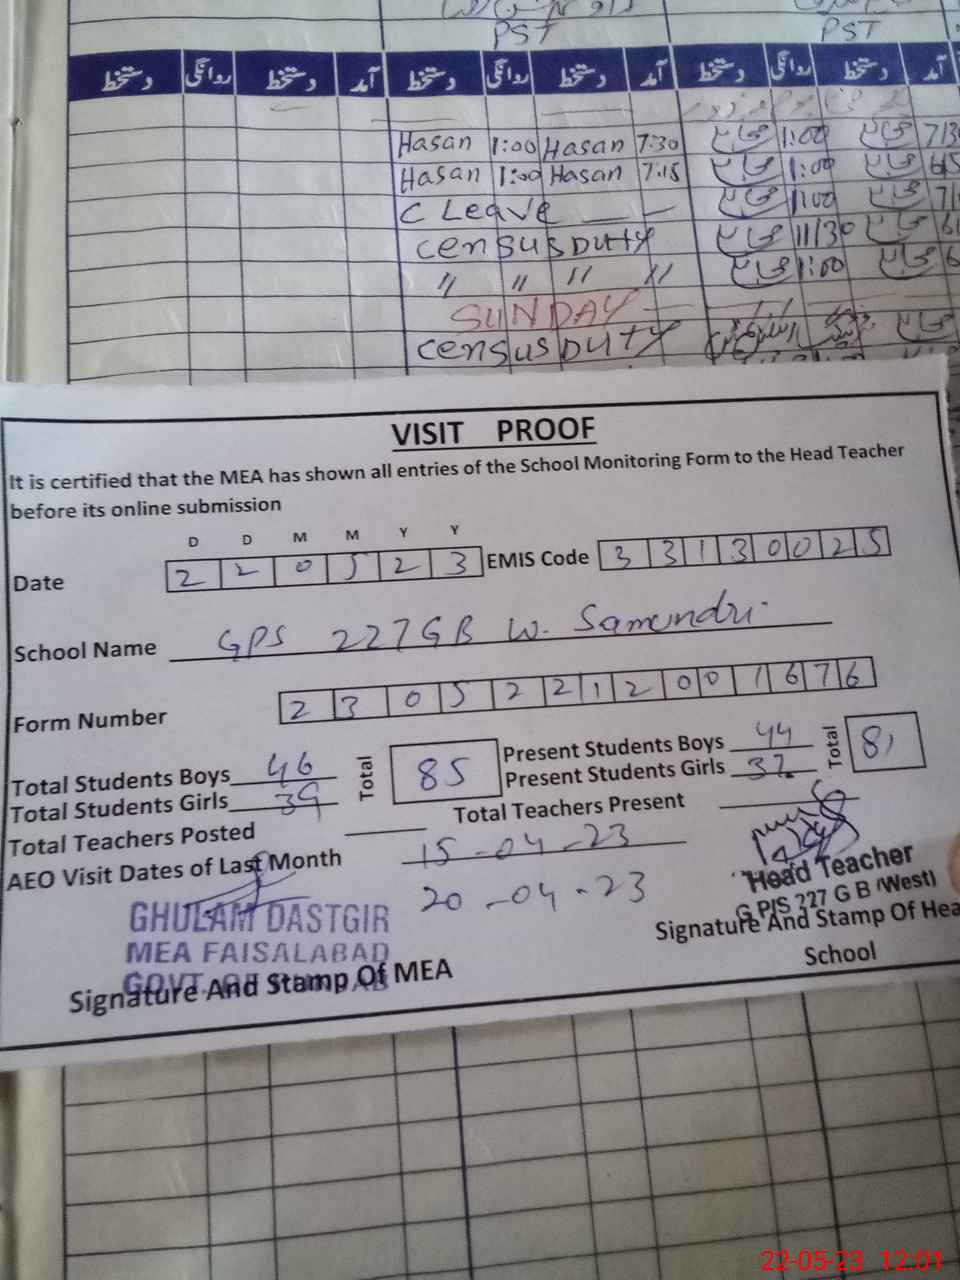 PST PST
دستخط روانگی دستخط آمد دستخط روانگی دستخط آمد دستخط روانگی دستخط آمد
Hasan 1:00 Hasan 7:30 1:00
Hasan 1:00 Hasan 7:15 1:00
C Leave — — 1:00
Census DUTY 11/30
〃 〃 〃 〃 1:00
SUNDAY
Census DUTY
VISIT PROOF
It is certified that the MEA has shown all entries of the School Monitoring Form to the Head Teacher
before its online submission
D D M M Y Y
Date 2 2 0 5 2 3 EMIS Code 3 3 1 3 0 0 2 5
School Name GPS 227 GB W. Samundri
Form Number 2 3 0 5 2 2 1 2 0 0 1 6 7 6
Total Students Boys 46 Total 85 Present Students Boys 44 Total 81
Total Students Girls 39 Present Students Girls 37
Total Teachers Posted Total Teachers Present
AEO Visit Dates of Last Month 15-04-23
20-04-23
Head Teacher
G P/S 227 G B (West)
GHULAM DASTGIR
MEA FAISALABAD
GOVT. OF PUNJAB
Signature And Stamp Of MEA
Signature And Stamp Of Hea
School
22-05-23 12:01